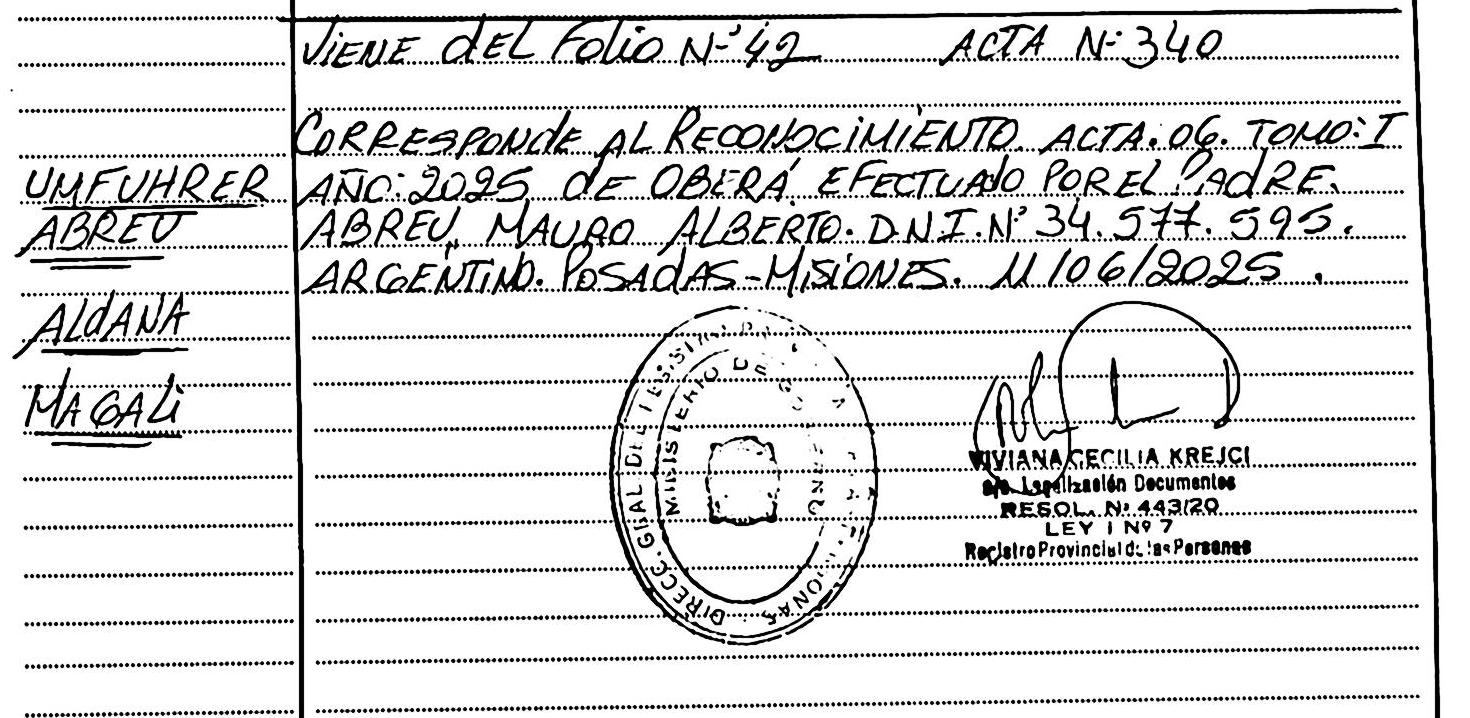 VIENE DEL FOLIO Nº 42 ACTA Nº 340
CORRESPONDE AL RECONOCIMIENTO. ACTA: 06. TOMO: I
AÑO: 2025 DE OBERÁ EFECTUADO POR EL PADRE.
ABREU, MAURO ALBERTO. D.N.I. Nº 34.577.595.
ARGENTINO. POSADAS-MISIONES. 11/06/2025.
UMFUHRER
ABREU
ALDANA
MAGALI
MINISTERIO DE GOBIERNO
VIVIANA CECILIA KREJCI
a/c. Legalización Documentos
RESOL. Nº 443/20
LEY I Nº 7
Registro Provincial de las Personas